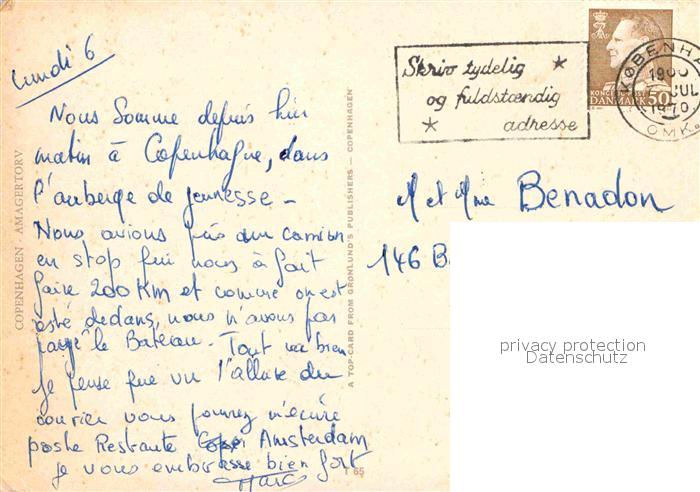 Lundi 6
Nous Somme depuis hier
matin à Copenhague, dans
l'auberge de jeunesse -
Nous avions pris un camion
en stop qui nous à fait
faire 200 Km et comme on est
resté dedans, nous n'avons pas
payé le Bateau - Tout va bien
Je pense que vu l'allure du
courier vous pourrez m'écrire
poste Restante Amsterdam
Je vous embrasse bien fort
Marc
COPENHAGEN - AMAGERTORV
A TOP-CARD FROM GRØNLUND'S PUBLISHERS - COPENHAGEN
T 65
Skriv tydelig
og fuldstændig
adresse
KØBENHA
JUL
1970
OMK.
DANMARK 50
M et Mme Benadon
146 B
privacy protection
Datenschutz